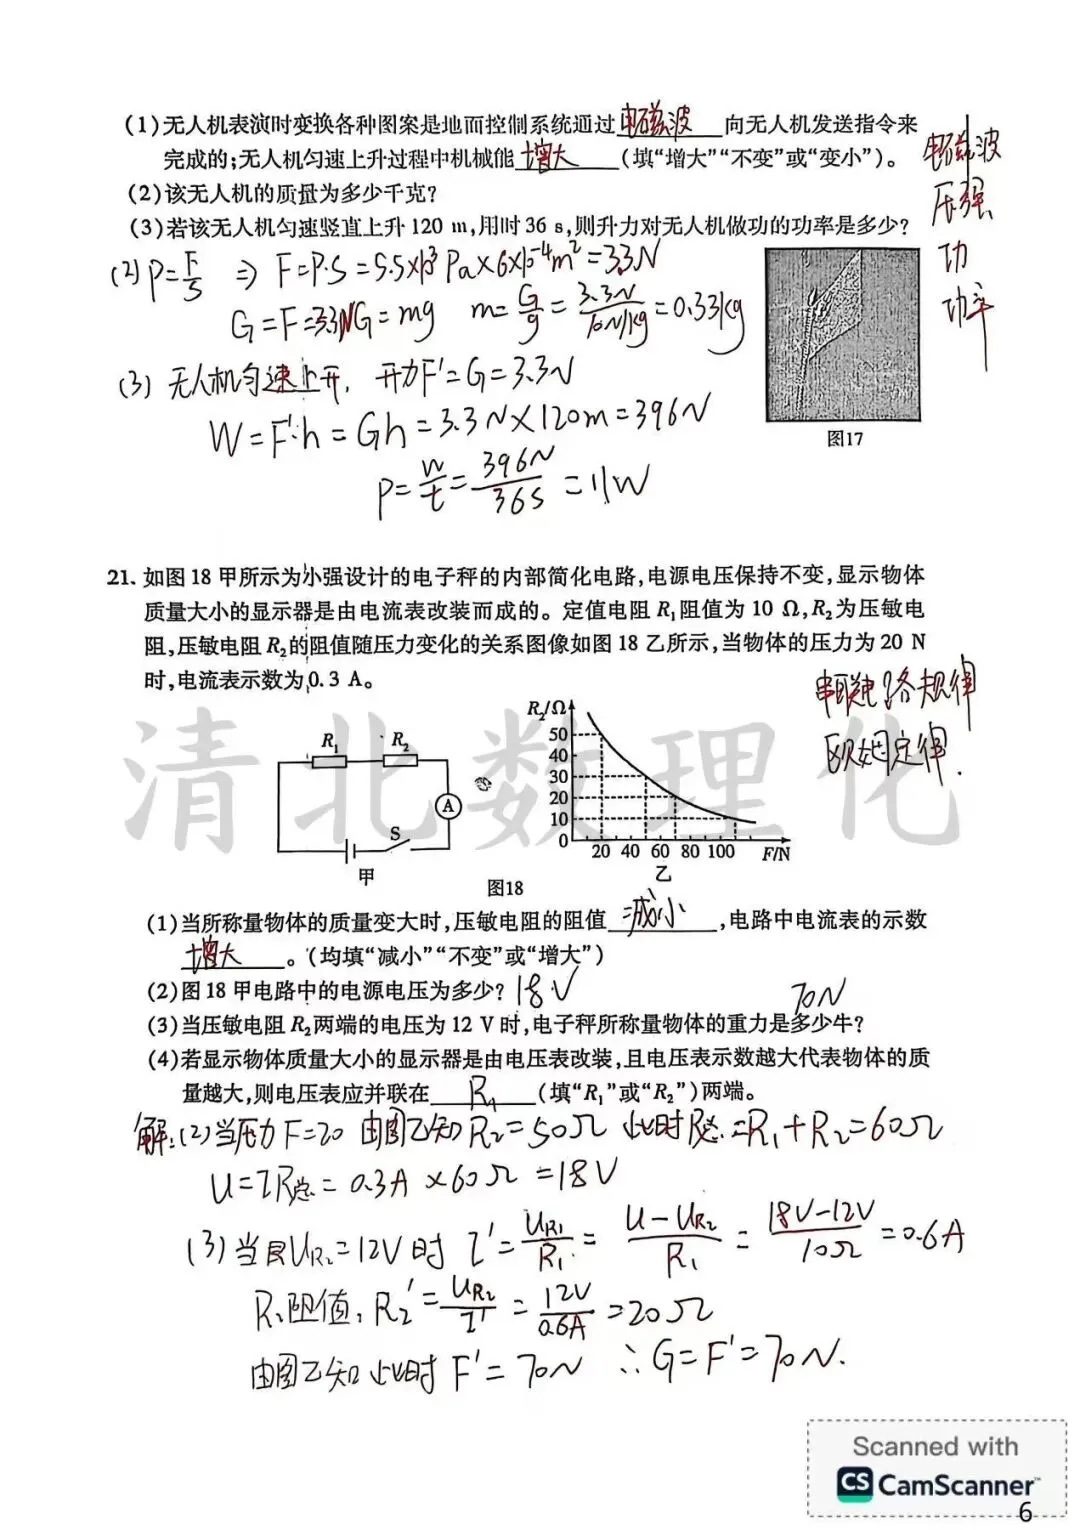 (1)无人机表演时变换各种图案是地面控制系统通过 电磁波 向无人机发送指令来
完成的;无人机匀速上升过程中机械能 增大 (填“增大”“不变”或“变小”)。
(2)该无人机的质量为多少千克?
(3)若该无人机匀速竖直上升120 m,用时36 s,则升力对无人机做功的功率是多少?
电磁波
压强
功
功率
(2) P=F/S ⇒ F=P·S=5.5×10³ Pa×6×10⁻⁴m²=3.3N
G=F=3.3N G=mg m=G/g=3.3N/10N/kg=0.33kg
(3) 无人机匀速上升, 升力F'=G=3.3N
W=F'·h=Gh=3.3N×120m=396N
P=W/t=396N/36S=11W
图17
21. 如图18甲所示为小强设计的电子秤的内部简化电路,电源电压保持不变,显示物体
质量大小的显示器是由电流表改装而成的。定值电阻R₁阻值为10 Ω,R₂为压敏电
阻,压敏电阻R₂的阻值随压力变化的关系图像如图18乙所示,当物体的压力为20 N
时,电流表示数为0.3 A。
串联电路规律
欧姆定律.
清北数理化
R₁ R₂
A
S
甲
R₂/Ω
50
40
30
20
10
0
20 40 60 80 100 F/N
乙
图18
(1)当所称量物体的质量变大时,压敏电阻的阻值 减小 ,电路中电流表的示数
增大 。(均填“减小”“不变”或“增大”)
(2)图18甲电路中的电源电压为多少? 18V
70N
(3)当压敏电阻R₂两端的电压为12 V时,电子秤所称量物体的重力是多少牛?
(4)若显示物体质量大小的显示器是由电压表改装,且电压表示数越大代表物体的质
量越大,则电压表应并联在 R₁ (填“R₁”或“R₂”)两端。
解:(2)当压力F=20 由图乙知R₂=50Ω 此时R总=R₁+R₂=60Ω
U=IR总=0.3A×60Ω=18V
(3)当UR₂=12V时 I'=UR₁/R₁=U-UR₂/R₁=18V-12V/10Ω=0.6A
阻值, R₂'=UR₂/I'=12V/0.6A=20Ω
由图乙知 此时F'=70N ∴G=F'=70N.
Scanned with
CS CamScanner™
6